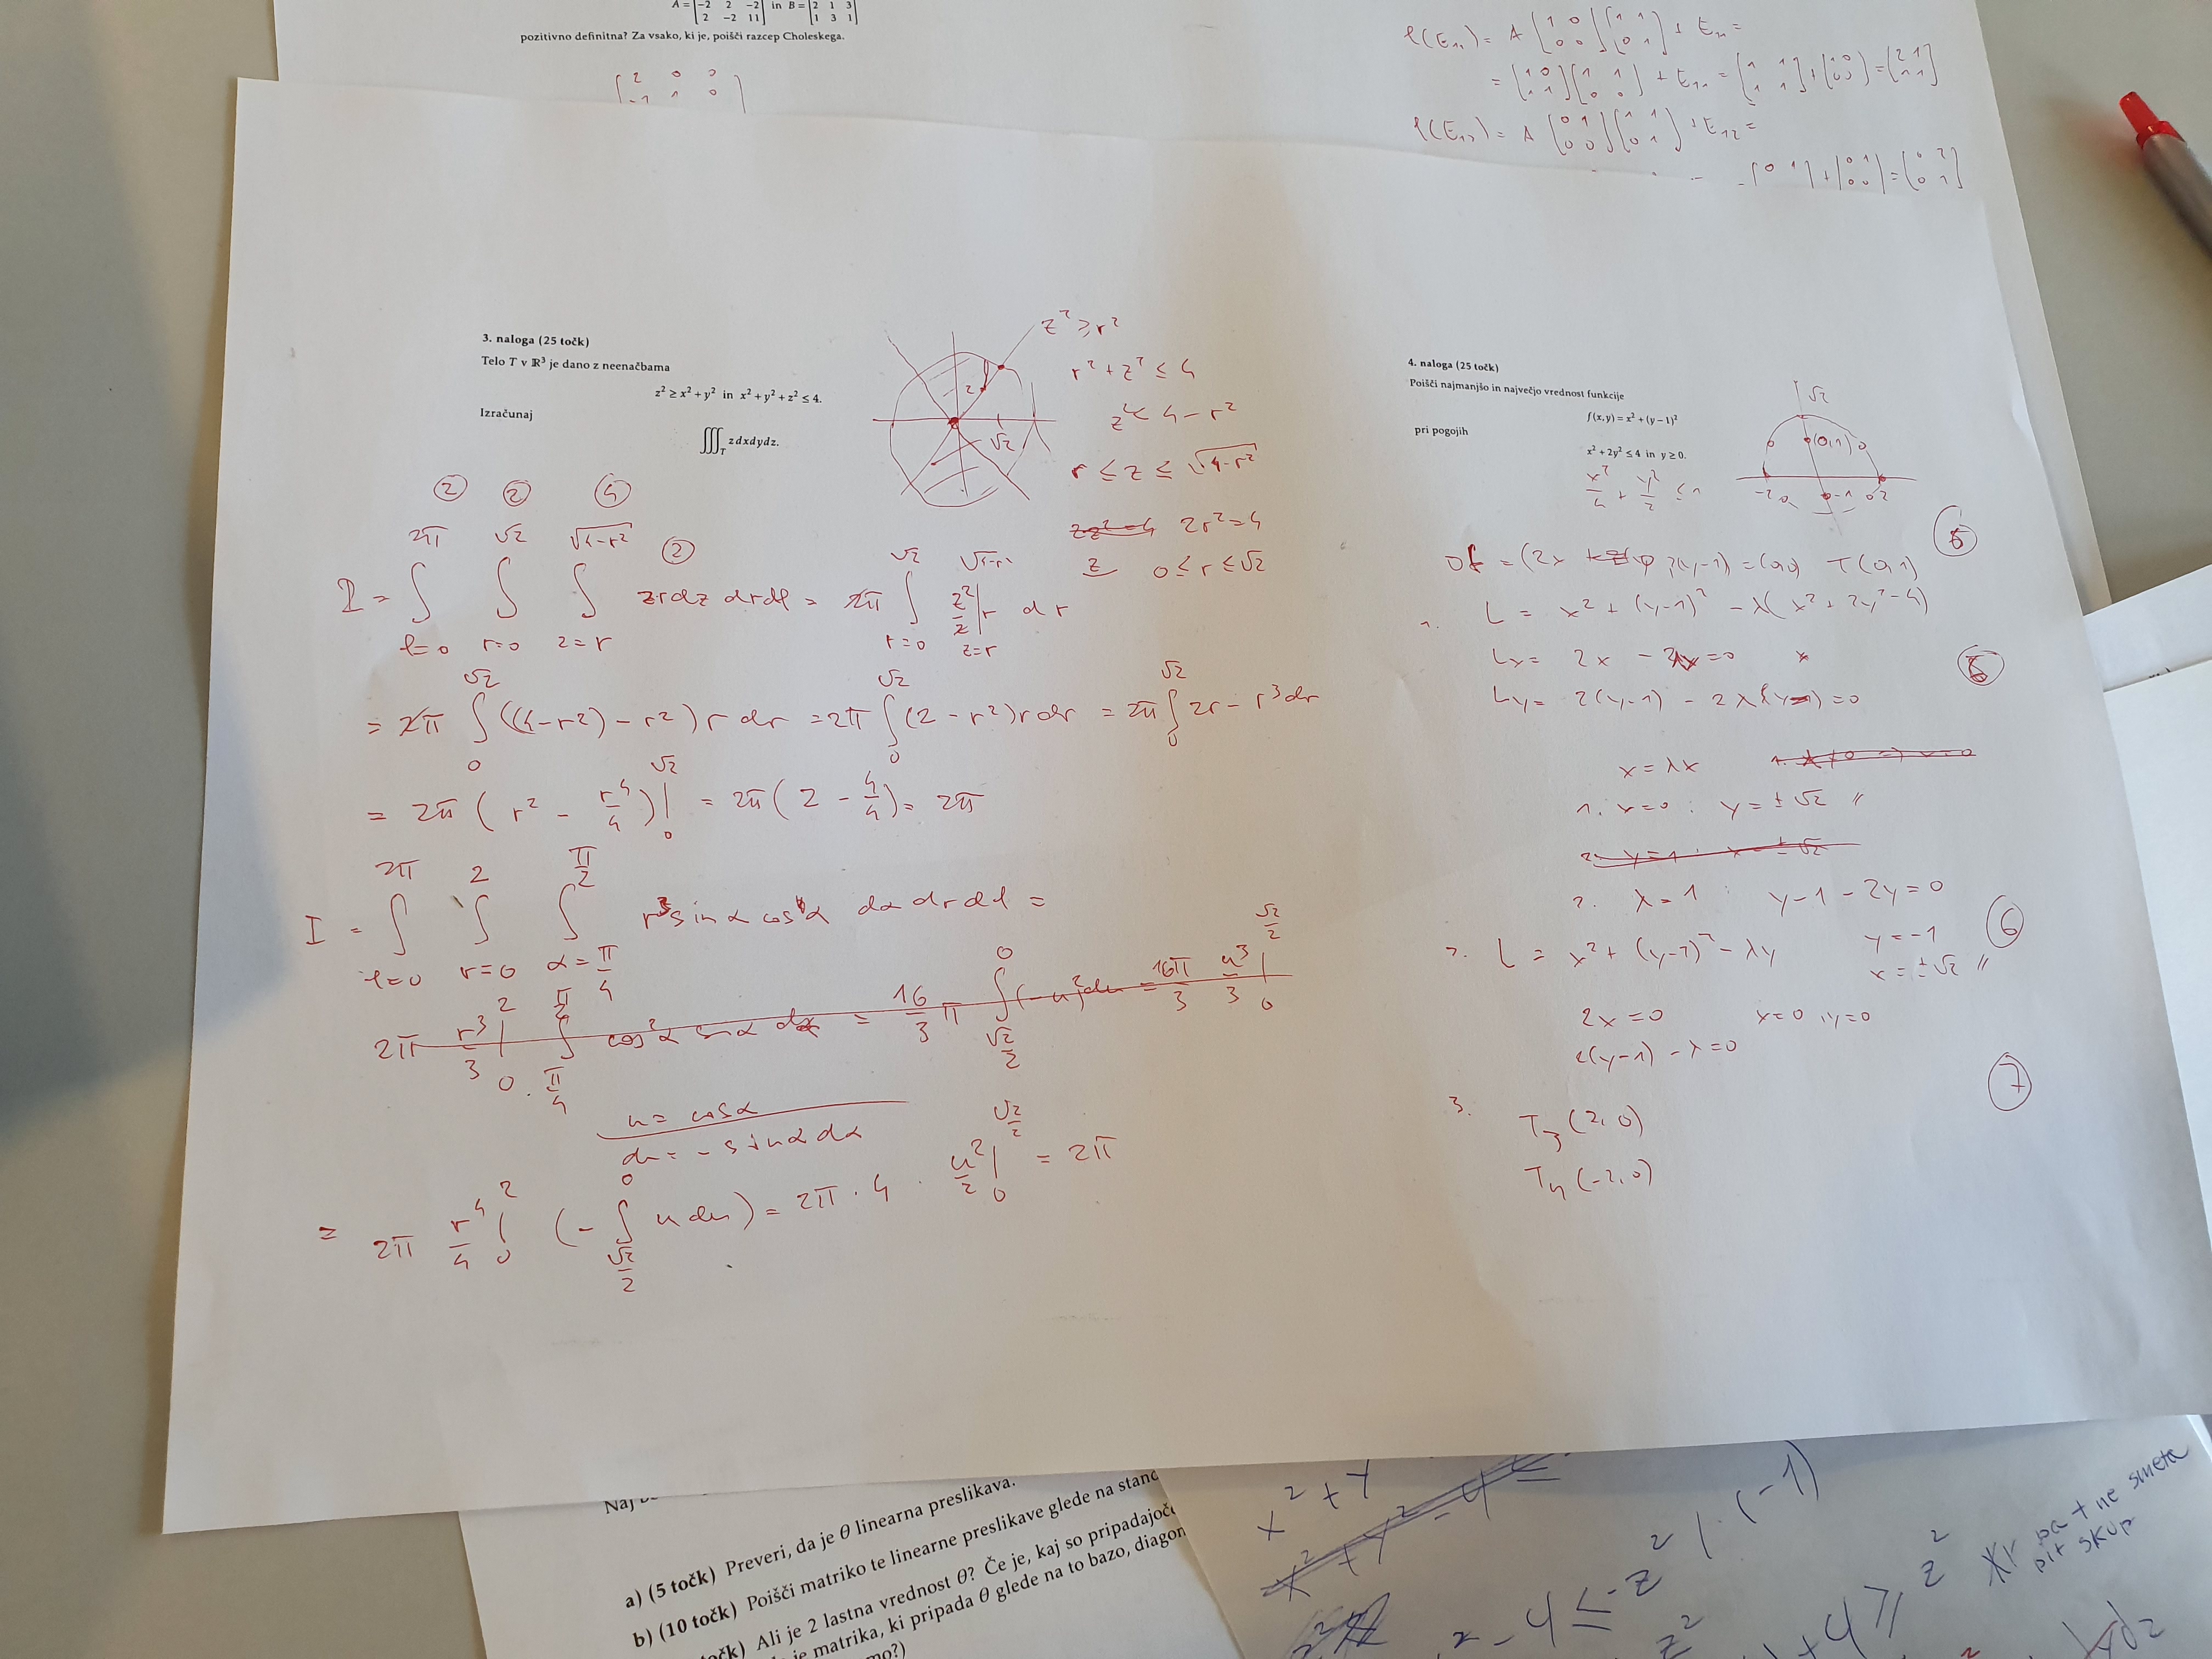 A = [-2 2 -2; 2 -2 11] in B = [2 1 3; 1 3 1]
pozitivno definitna? Za vsako, ki je, poišči razcep Choleskega.
[2 0 0
-1 1 0]
φ(E₁₁) = A [1 0; 0 0] [1 1; 0 1] + E₁₁ =
= [1 0; 1 1] [1 1; 0 0] + E₁₁ = [1 1; 1 1] + [1 0; 0 0] = [2 1; 1 1]
φ(E₁₂) = A [0 1; 0 0] [1 1; 0 1] + E₁₂ =
= [0 1 ] + [0 1; 0 0] = [0 2; 0 1]
3. naloga (25 točk)
Telo T v ℝ³ je dano z neenačbama
z² ≥ x² + y² in x² + y² + z² ≤ 4.
Izračunaj
∭_T z dx dy dz.
z² ≥ r²
2
√2
r² + z² ≤ 4
z² ≤ 4 - r²
r ≤ z ≤ √(4-r²)
2z² = 4 2r² = 4
z 0 ≤ r ≤ √2
② ② ④
②
I = ∫_{φ=0}^{2π} ∫_{r=0}^{√2} ∫_{z=r}^{√(4-r²)} zr dz dr dφ = 2π ∫_{r=0}^{√2} z²/2 |_{z=r}^{√(4-r²)} r dr
= 2π ∫_0^{√2} ((4-r²) - r²) r dr = 2π ∫_0^{√2} (2 - r²) r dr = 2π ∫_0^{√2} 2r - r³ dr
= 2π (r² - r⁴/4) |_0^{√2} = 2π (2 - 4/4) = 2π
I = ∫_{φ=0}^{2π} ∫_{r=0}^{2} ∫_{α=π/4}^{π/2} r³ sin α cos α dα dr dφ =
2π r³/3 |_0^2 · ∫_{π/4}^{π/2} cos² α sin α dα = 16/3 π ∫_{√2/2}^0 (-u)² du = 16π/3 u³/3 |_0^{√2/2}
u = cos α
du = - sin α dα
= 2π r⁴/4 |_0^2 (- ∫_{√2/2}^0 u du) = 2π · 4 · u²/2 |_0^{√2/2} = 2π
4. naloga (25 točk)
Poišči najmanjšo in največjo vrednost funkcije
f(x,y) = x² + (y-1)²
pri pogojih
x² + 2y² ≤ 4 in y ≥ 0.
x²/4 + y²/2 ≤ 1
√2
(0,1)
-2 -1 2
∇f = (2x, 2(y-1)) = (0,0) T(0,1)
⑥
1. L = x² + (y-1)² - λ(x² + 2y² - 4)
Lx = 2x - 2λx = 0
⑥
Ly = 2(y-1) - 2λ(y-1) = 0
x = λx
1. x=0 : y = ±√2 //
2. y=1 : x = ±√2
2. λ = 1 : y - 1 - 2y = 0
y = -1
x = ±√2 //
⑥
2. L = x² + (y-1)² - λy
2x = 0 x=0, y=0
2(y-1) - λ = 0
⑦
3. T₃(2,0)
T₄(-2,0)
Naj
a) (5 točk) Preveri, da je θ linearna preslikava.
b) (10 točk) Poišči matriko te linearne preslikave glede na stand
točk) Ali je 2 lastna vrednost θ? Če je, kaj so pripadajoč
je matrika, ki pripada θ glede na to bazo, diagon
mo?)
x² + y
x² + y² - 4 ≤
x - 4 ≤ -z² / · (-1)
+ 4 ≥ z²
pa t ne smeta
bit skup
z²